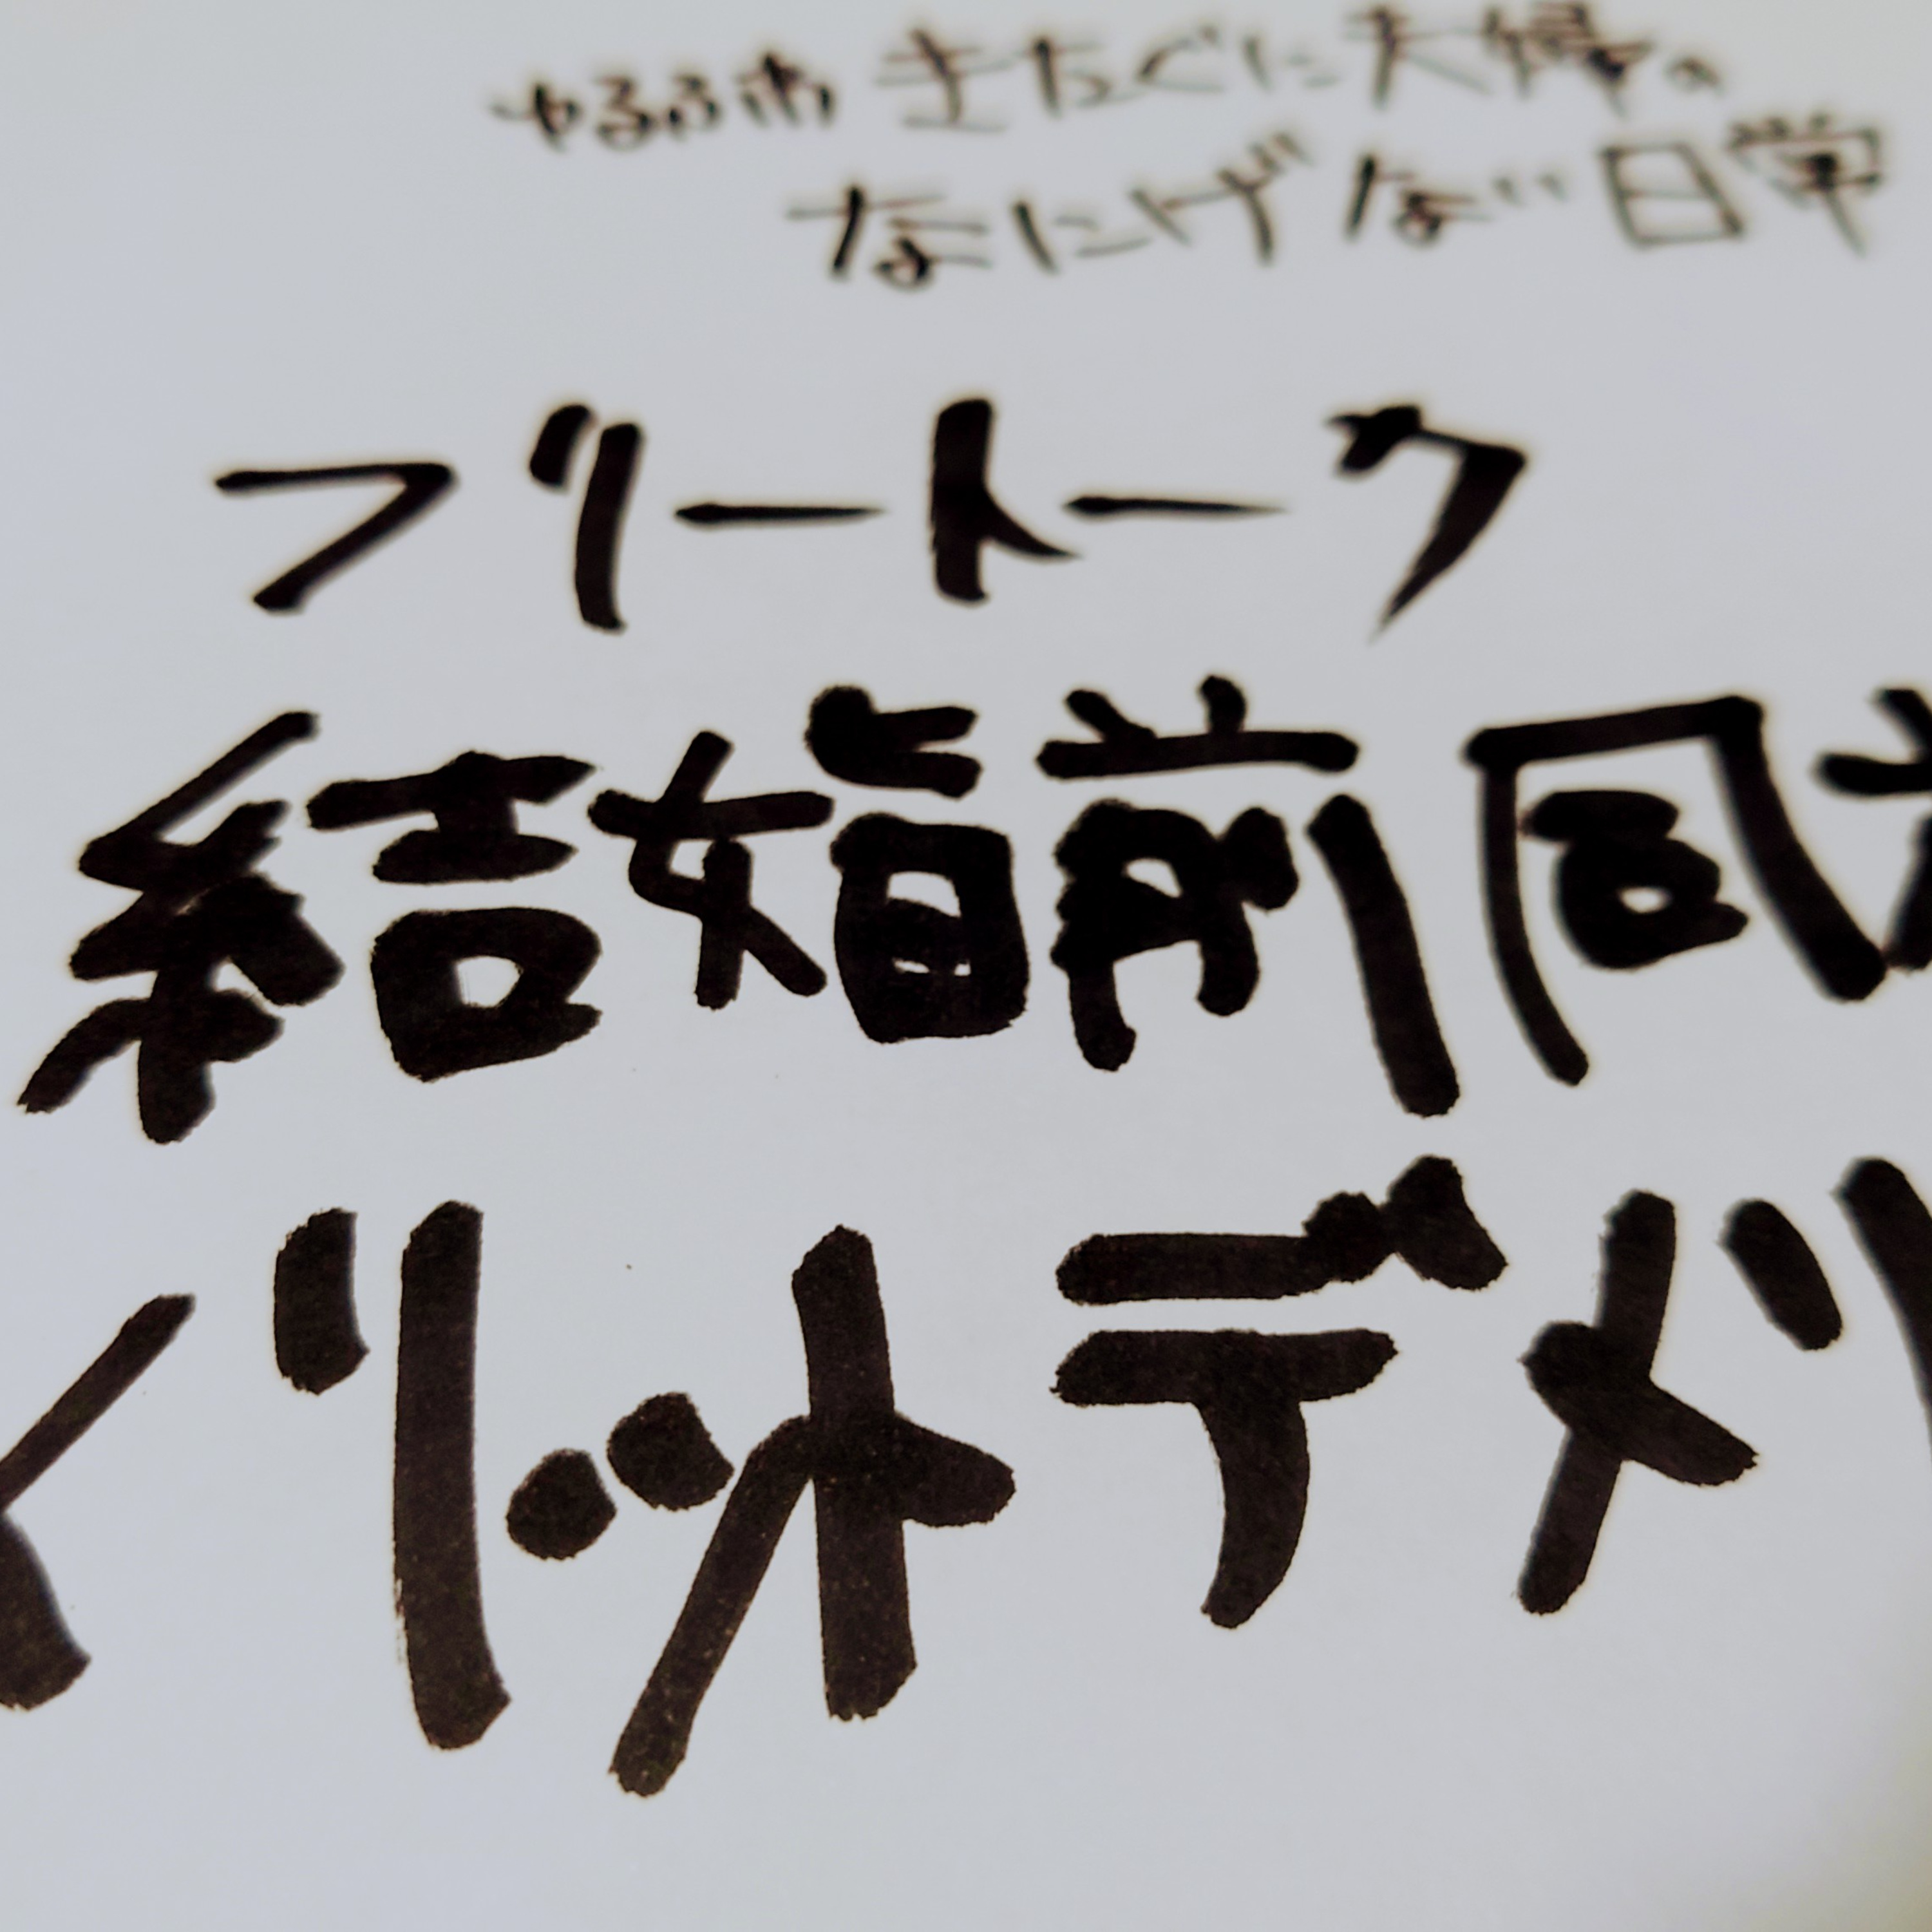 ゆるふわ きちぐに夫婦の
なにげない日常
フリートーク
結婚前同
メリット デメリ